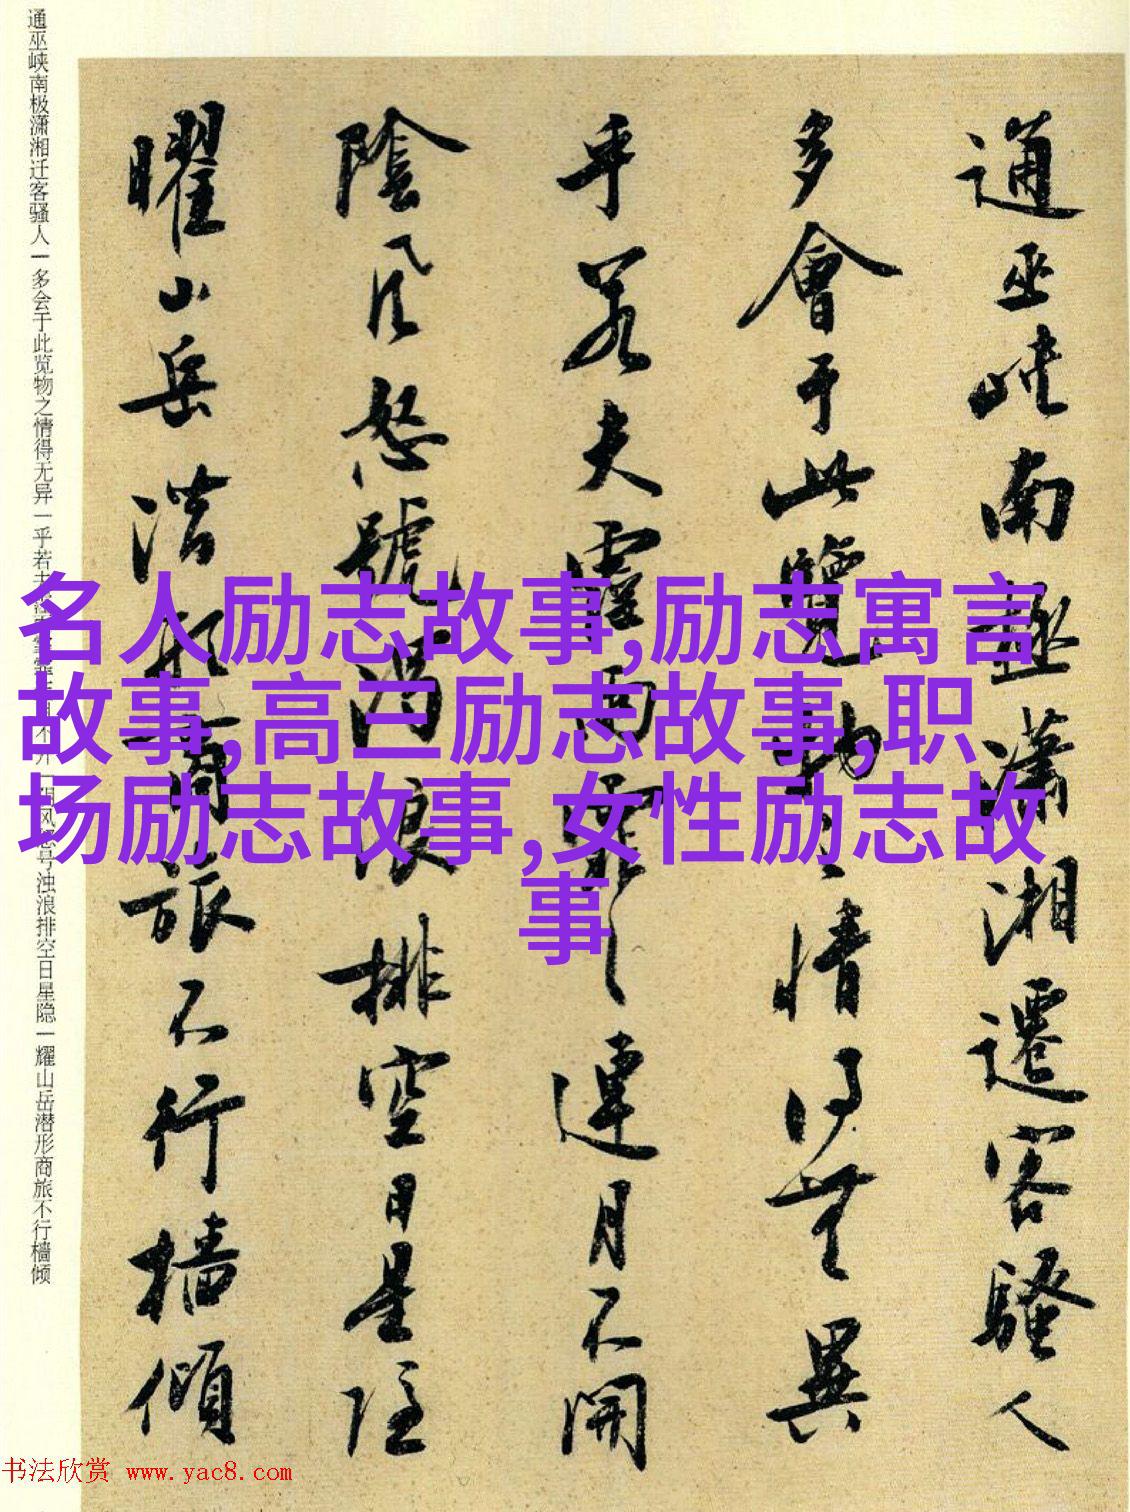 通巫峽南極瀟湘遷客騷人
多會于此覽物之情得無異
乎若夫霪雨霏連月不開
陰風怒號濁浪排空日星隱
曜山岳潛形商旅不行檣傾
通巫峡南极潇湘迁客骚人一多会于此览物之情得无异一乎若夫开一阴风怒号浊浪排空日星隐一耀山岳潜形商旅不行樯倾
名人励志故事,励志寓言
故事,高三励志故事,职
场励志故事,女性励志故
事
书法欣赏 www.yac8.com